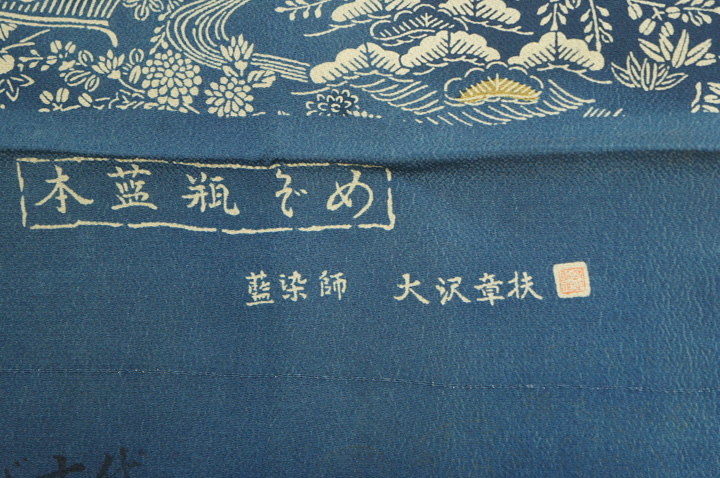 本藍瓶ぞめ
藍染師 大沢章扶
十代